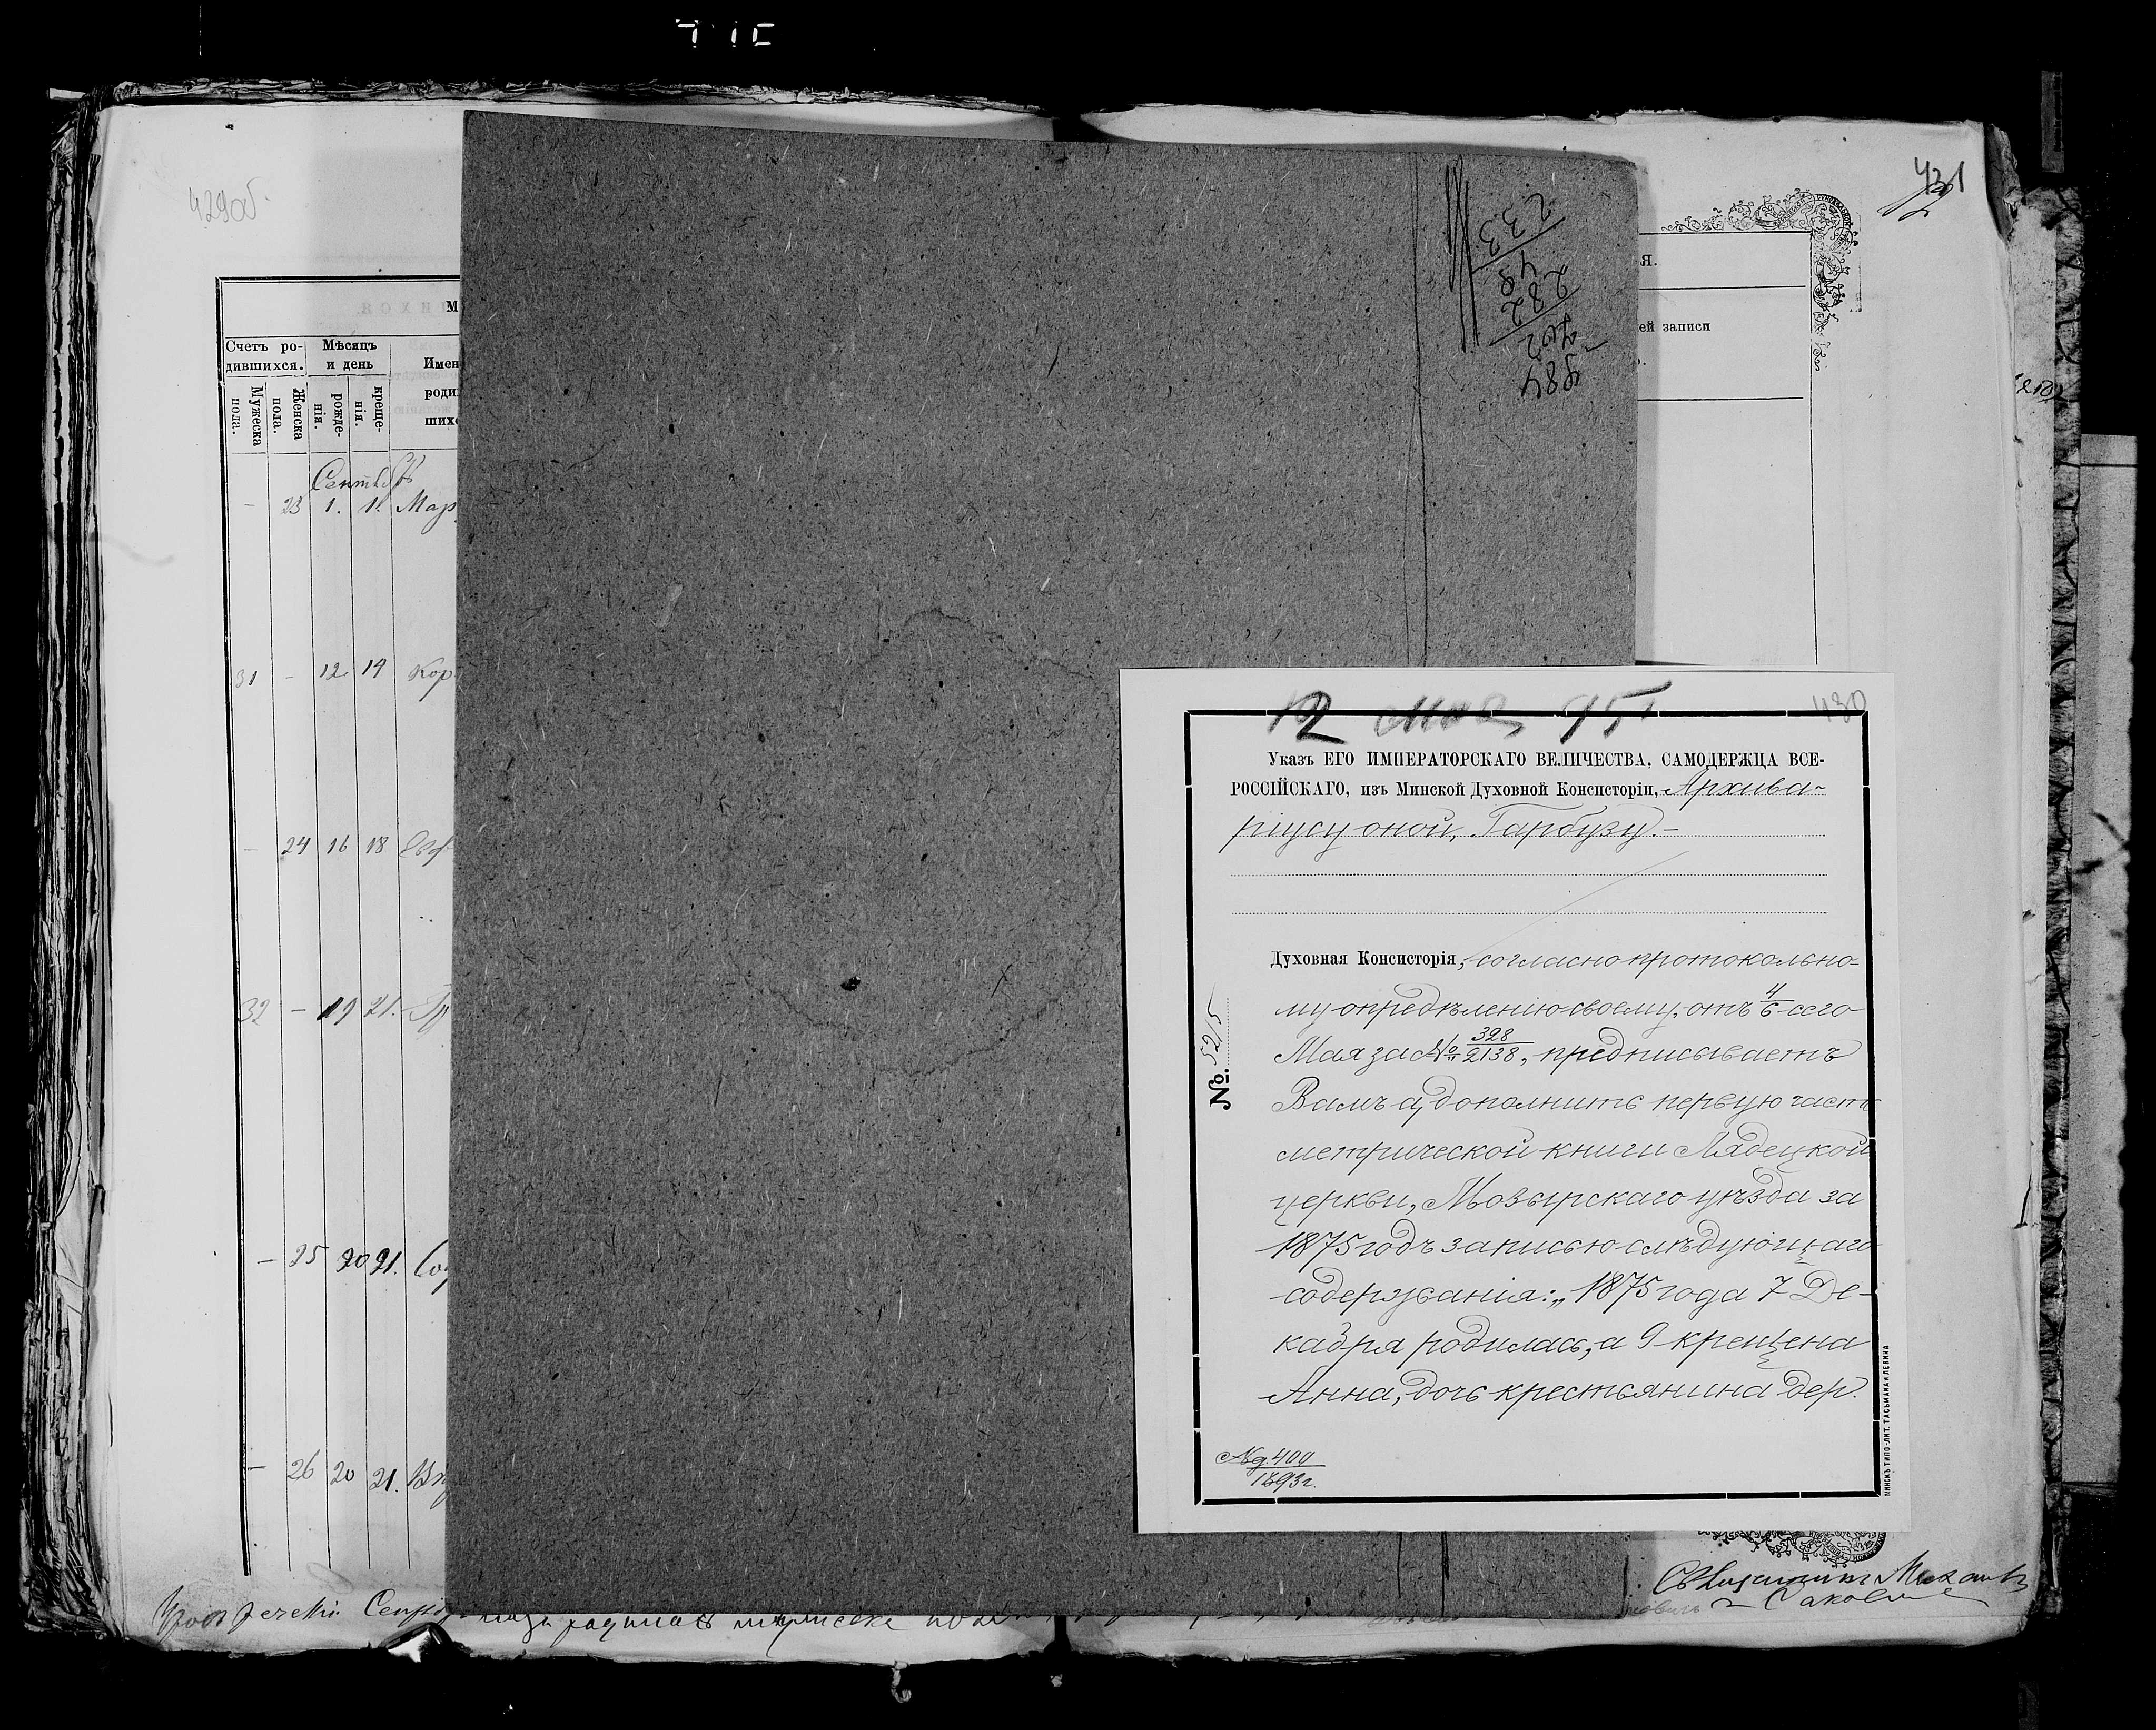 429об.
431
М
Счетъ ро-
дившихся.
Мѣсяцъ
и день
Имен
роди
шихс
Мужеска
пола.
Женска
пола.
рожде-
нія.
креще-
нія.
Я.
ей записи
Сентябрь
- 23 1. 1. Мар
31 - 12. 14 Кор
- 24 16 18 Евф
32 - 19 21. Гр
- 25 20 21. Соф
- 26 20 21.
233
49
282
202
484
12 мая 95 г
430
Указъ ЕГО ИМПЕРАТОРСКАГО ВЕЛИЧЕСТВА, САМОДЕРЖЦА ВСЕ-
РОССІЙСКАГО, изъ Минской Духовной Консисторіи, Архива-
ріусу оной, Гарбузу.-
Духовная Консисторія, согласно протокольно-
му опредѣленію своему, отъ 4/6 сего
Мая за № 398/2138, предписываетъ
Вамъ а, дополнить первую часть
метрической книги Лядецкой
церкви, Мозырскаго уѣзда за
1875 годъ записью слѣдующаго
содержанія: „1875 года 7 Де-
кабря родилась, а 9 крещена
Анна, дочь крестьянина дер.
№ 5215
№ д. 400
1893 г.
МИНСКЪ ТИПО-ЛИТ. ТАСЬМАНА И ЛЕВИНА
Священникъ Михаилъ
Саковичъ